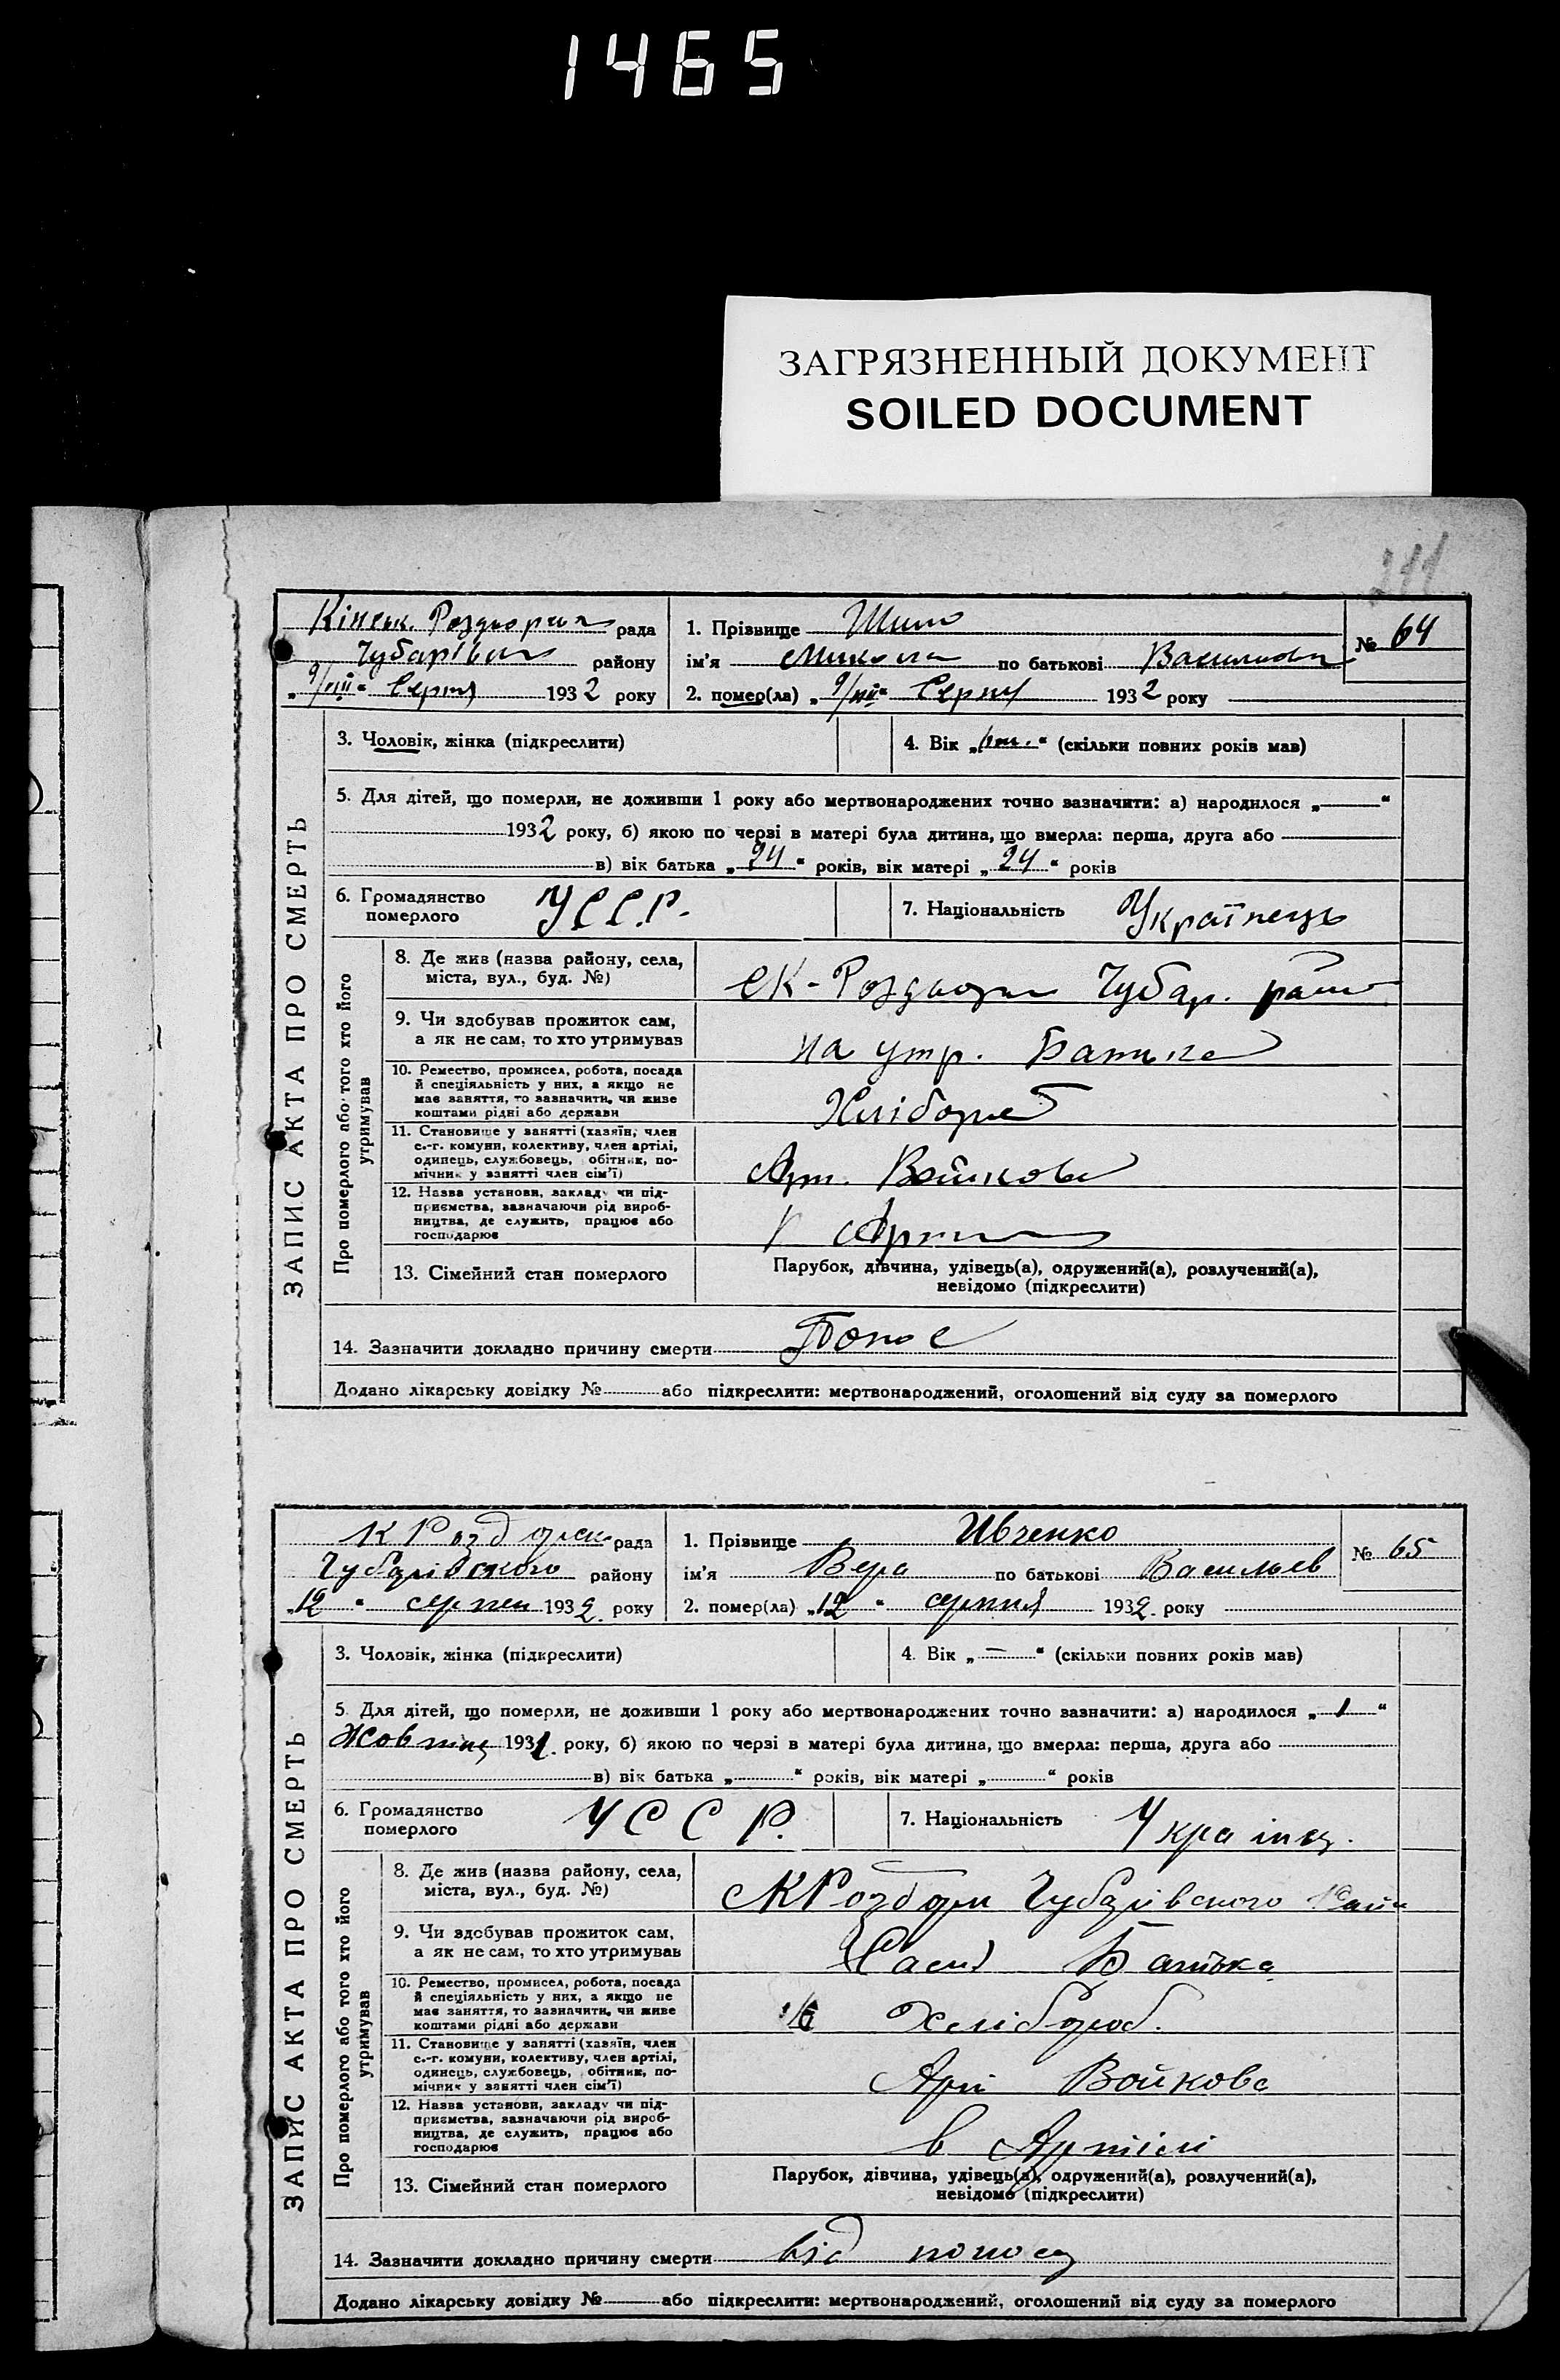 1465
ЗАГРЯЗНЕННЫЙ ДОКУМЕНТ
SOILED DOCUMENT
211
ЗАПИС АКТА ПРО СМЕРТЬ
Кінськ. Роздорська рада
району
„9/VIII“ Серпня 1932 року
1. Прізвище
№ 64
ім'я Микола по батькові
2. помер(ла) „9/VIII“ Серпня 1932 року
3. Чоловік, жінка (підкреслити)
4. Вік „ “ (скільки повних років мав)
5. Для дітей, що померли, не доживши 1 року або мертвонароджених точно зазначити: а) народилося „ “
1932 року, б) якою по черзі в матері була дитина, що вмерла: перша, друга або
в) вік батька „24“ років, вік матері „24“ років
6. Громадянство
померлого
УССР.
7. Національність Українець
Про померлого або того хто його
утримував
8. Де жив (назва району, села,
міста, вул., буд. №)
Чубар. району
9. Чи здобував прожиток сам,
а як не сам, то хто утримував
на утр. Батька
10. Ремество, промисел, робота, посада
й спеціяльність у них, а якщо не
має заняття, то зазначити, чи живе
коштами рідні або держави
Хлібороб
11. Становище у занятті (хазяїн, член
с.-г. комуни, колективу, член артілі,
одинець, службовець, обітник, по-
мічник у занятті член сім'ї)
Арт. Войкова
12. Назва установи, закладу чи під-
приємства, зазначаючи рід вироб-
ництва, де служить, працює або
господарює
13. Сімейний стан померлого
Парубок, дівчина, удівець(а), одружений(а), розлучений(а),
невідомо (підкреслити)
14. Зазначити докладно причину смерти Понос
Додано лікарську довідку № або підкреслити: мертвонароджений, оголошений від суду за померлого
ЗАПИС АКТА ПРО СМЕРТЬ
К Роздорск. рада
Чубарівского району
„12“ серпня 1932. року
1. Прізвище Ивченко
№ 65
ім'я Вера по батькові Васильев
2. помер(ла) „12“ серпня 1932. року
3. Чоловік, жінка (підкреслити)
4. Вік „—“ (скільки повних років мав)
5. Для дітей, що померли, не доживши 1 року або мертвонароджених точно зазначити: а) народилося „1“
Жовтня 1931. року, б) якою по черзі в матері була дитина, що вмерла: перша, друга або
в) вік батька „ “ років, вік матері „ “ років
6. Громадянство
померлого
УССР.
7. Національність Українц.
Про померлого або того хто його
утримував
8. Де жив (назва району, села,
міста, вул., буд. №)
Чубарівского Район
9. Чи здобував прожиток сам,
а як не сам, то хто утримував
Батька
10. Ремество, промисел, робота, посада
й спеціяльність у них, а якщо не
має заняття, то зазначити, чи живе
коштами рідні або держави
Хлібороб.
11. Становище у занятті (хазяїн, член
с.-г. комуни, колективу, член артілі,
одинець, службовець, обітник, по-
мічник у занятті член сім'ї)
Арт Войкова
12. Назва установи, закладу чи під-
приємства, зазначаючи рід вироб-
ництва, де служить, працює або
господарює
в Артілі
13. Сімейний стан померлого
Парубок, дівчина, удівець(а), одружений(а), розлучений(а),
невідомо (підкреслити)
14. Зазначити докладно причину смерти від поносу
Додано лікарську довідку № або підкреслити: мертвонароджений, оголошений від суду за померлого